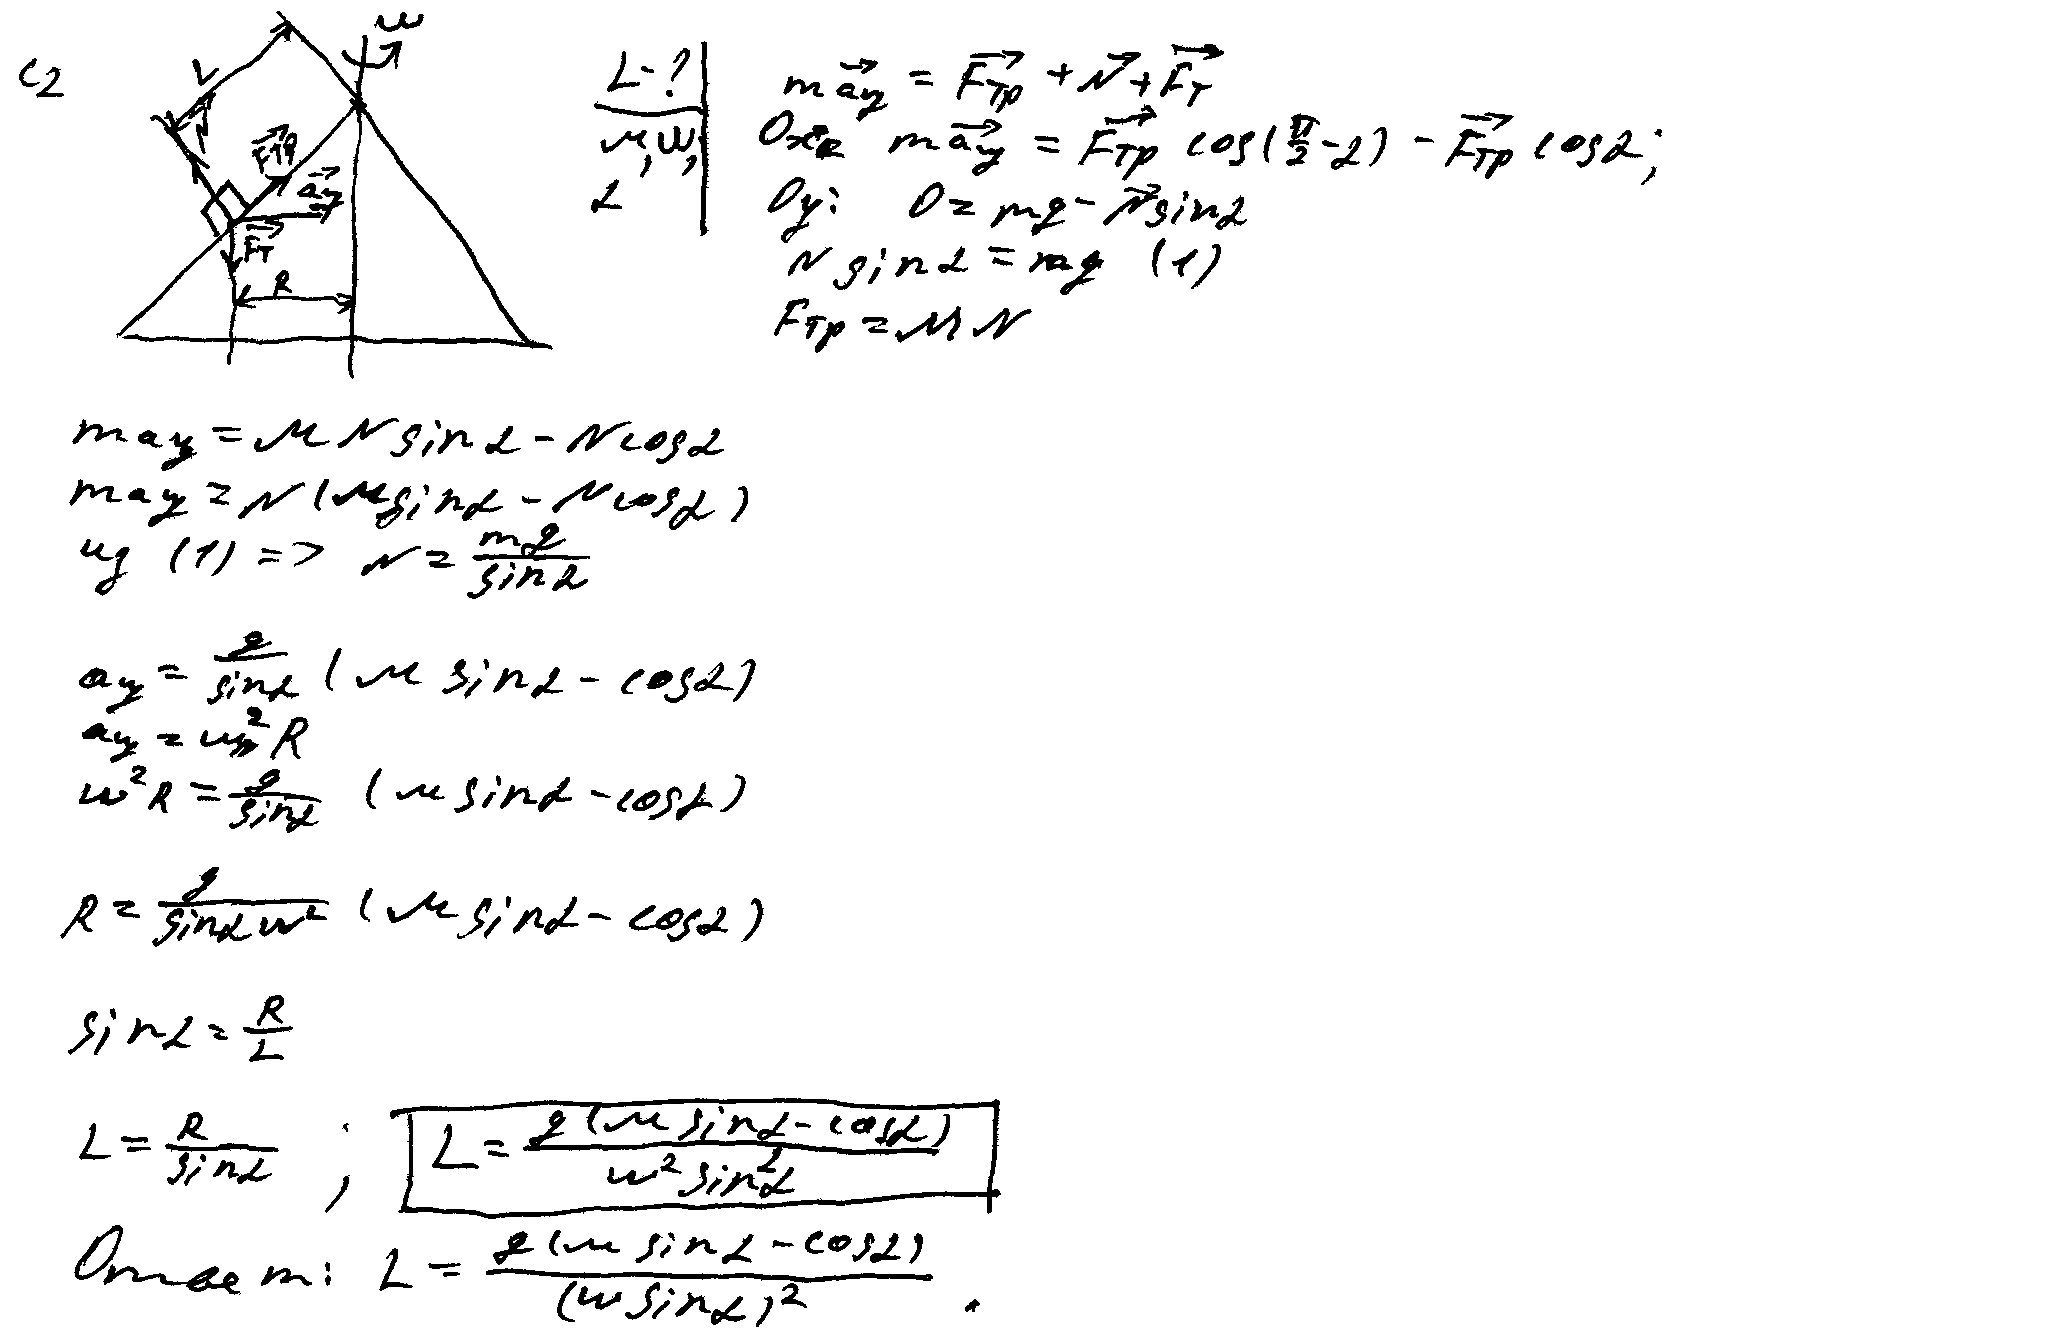 C2
ω
L
N
Fтр
aц
Fт
R
L-?
μ, ω,
α
m aц = Fтр + N + Fт
Ox m aц = Fтр cos(π/2 - α) - Fтр cos α;
Oy: 0 = mg - N sin α
N sin α = mg (1)
Fтр = μN
m aц = μ N sin α - N cos α
m aц = N (μ sin α - N cos α)
из (1) => N = mg / sin α
aц = g / sin α (μ sin α - cos α)
aц = ω² R
ω² R = g / sin α (μ sin α - cos α)
R = g / (sin α ω²) (μ sin α - cos α)
sin α = R / L
L = R / sin α ; L = g (μ sin α - cos α) / (ω² sin² α)
Ответ: L = g (μ sin α - cos α) / (ω sin α)² .